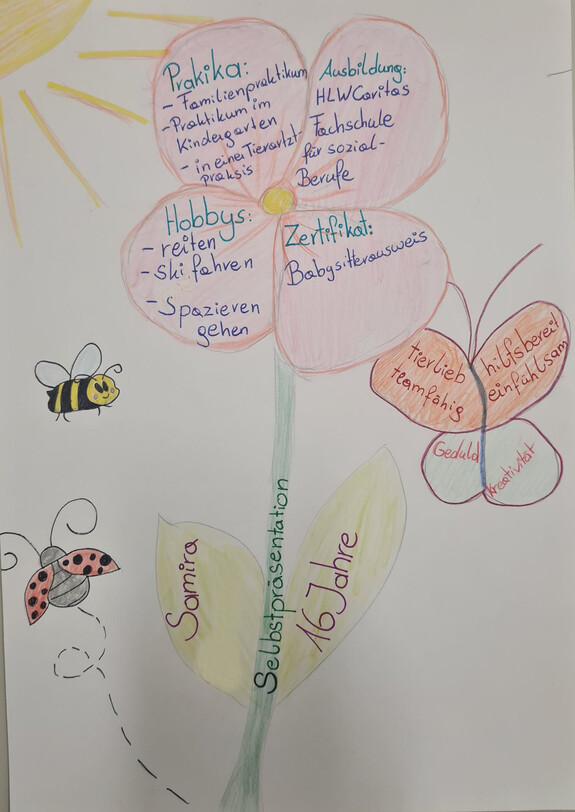 Prakika:
- Familienpraktikum
- Praktikum im
Kindergarten
- in einer Tierarzt-
praksis
Ausbildung:
HLW Caritas
Fachschule
für sozial-
Berufe
Hobbys:
- reiten
- Ski fahren
- Spazieren
gehen
Zertifikat:
Babysitterausweis
tierlieb
teamfähig
hilfsbereit
einfühlsam
Geduld
Kreativität
Selbstpräsentation
Samira
16 Jahre